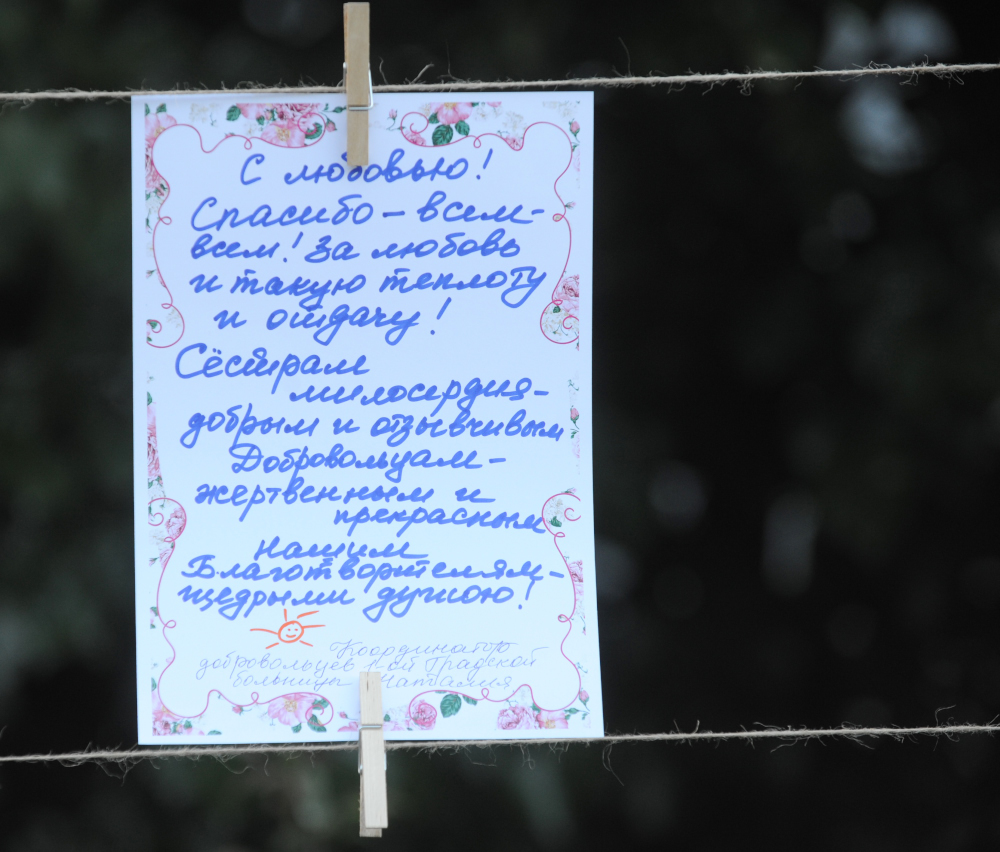 С любовью!
Спасибо - всем-
всем! За любовь
и такую теплоту
и отдачу!
Сёстрам
милосердия-
добрым и отзывчивым
Добровольцам-
жертвенным и
прекрасным
Нашим
Благотворителям-
щедрым душою!
Координатор
добровольцев 1-ой Градской
больницы Наталия